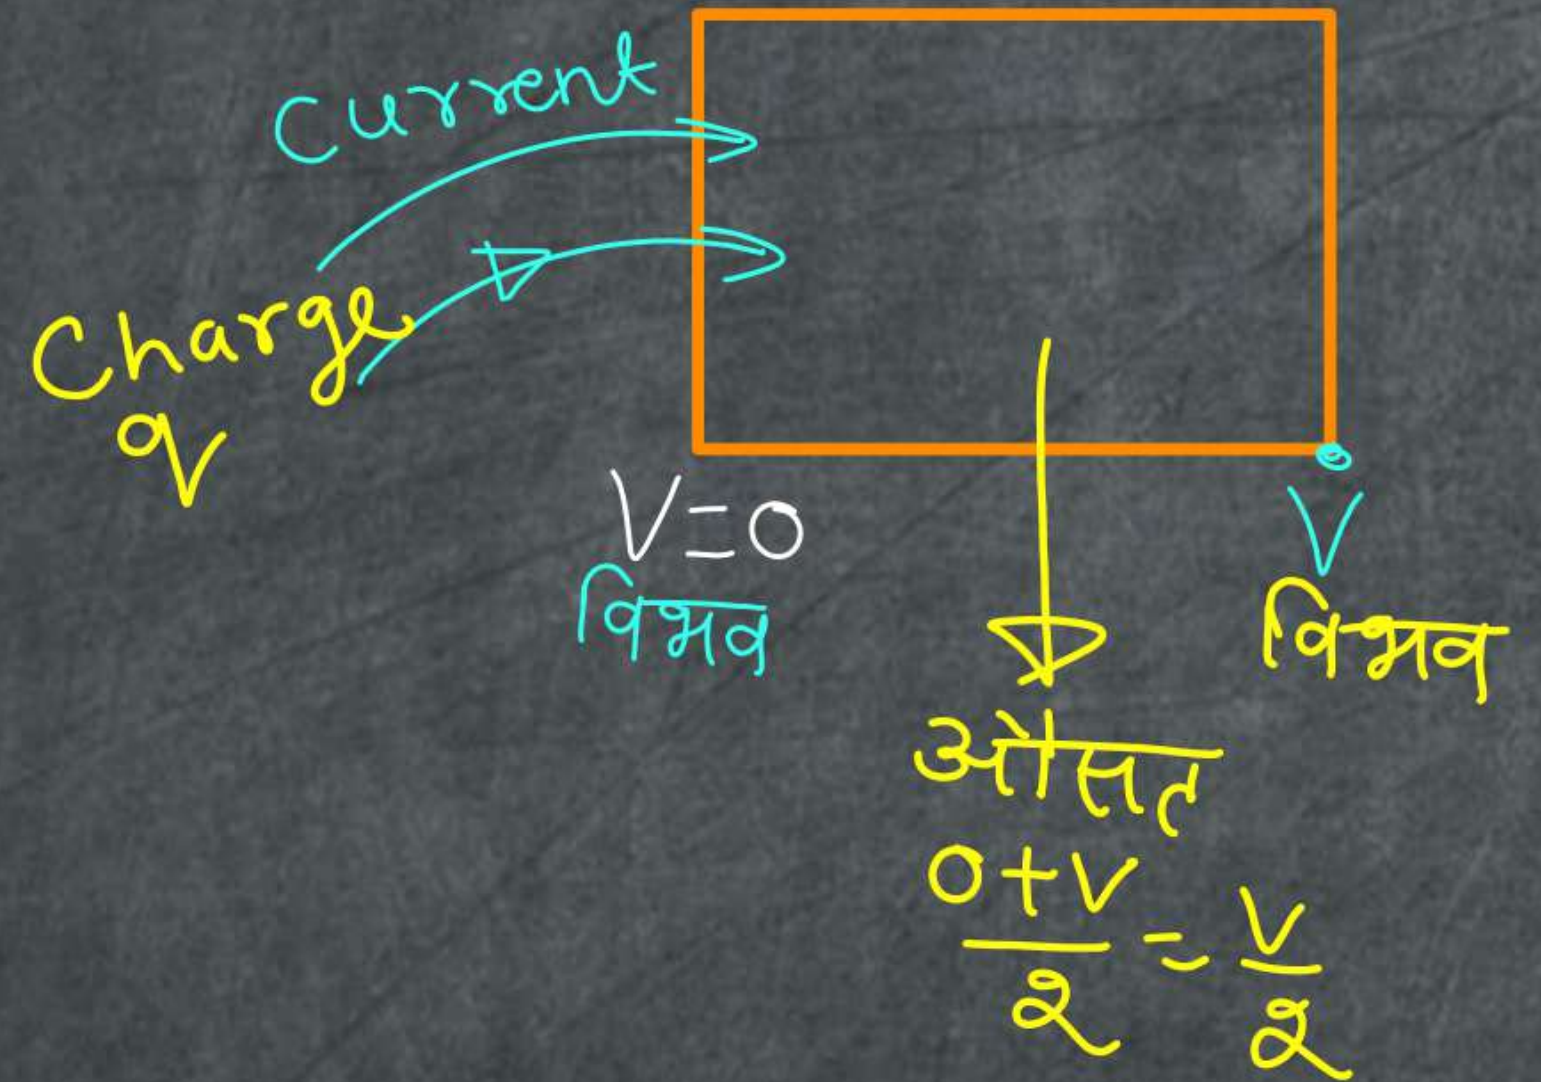 Current
Charge
q
V=0
विभव
V
विभव
औसत
0+V/2 = V/2